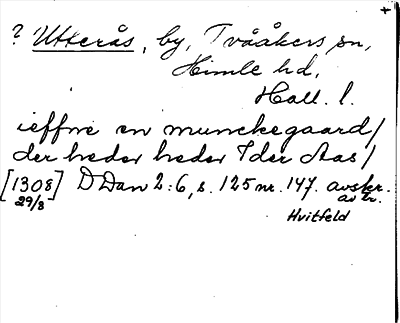 ? Utterås, by, Tvååkers sn,
Himle hd,
Hall. l.
ieffne en munckegaard/
der heder heder Yder Aas/
[1308] D Dan 2:6, s. 125 nr. 147. avskr.
29/8 av tr.
Hvitfeld